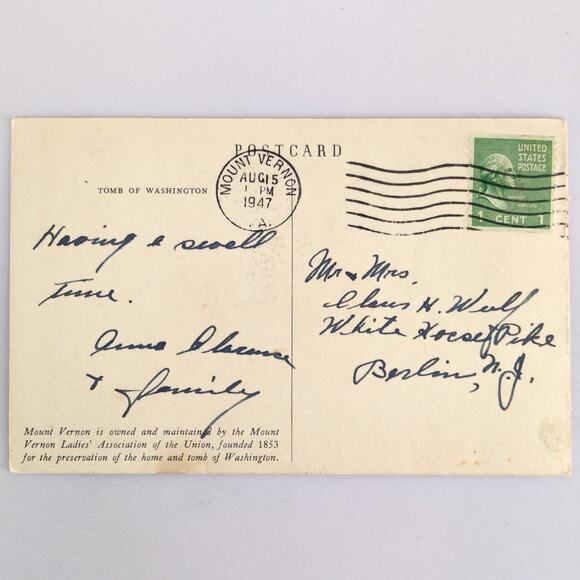 POSTCARD
TOMB OF WASHINGTON
MOUNT VERNON
AUG 15
PM
1947
VA.
UNITED
STATES
POSTAGE
1 CENT 1
Having a swell
time.
Anna Clarence
+ family
Mr & Mrs.
Claus H. Wulf
White Horse Pike
Berlin, N.J.
Mount Vernon is owned and maintained by the Mount
Vernon Ladies' Association of the Union, founded 1853
for the preservation of the home and tomb of Washington.